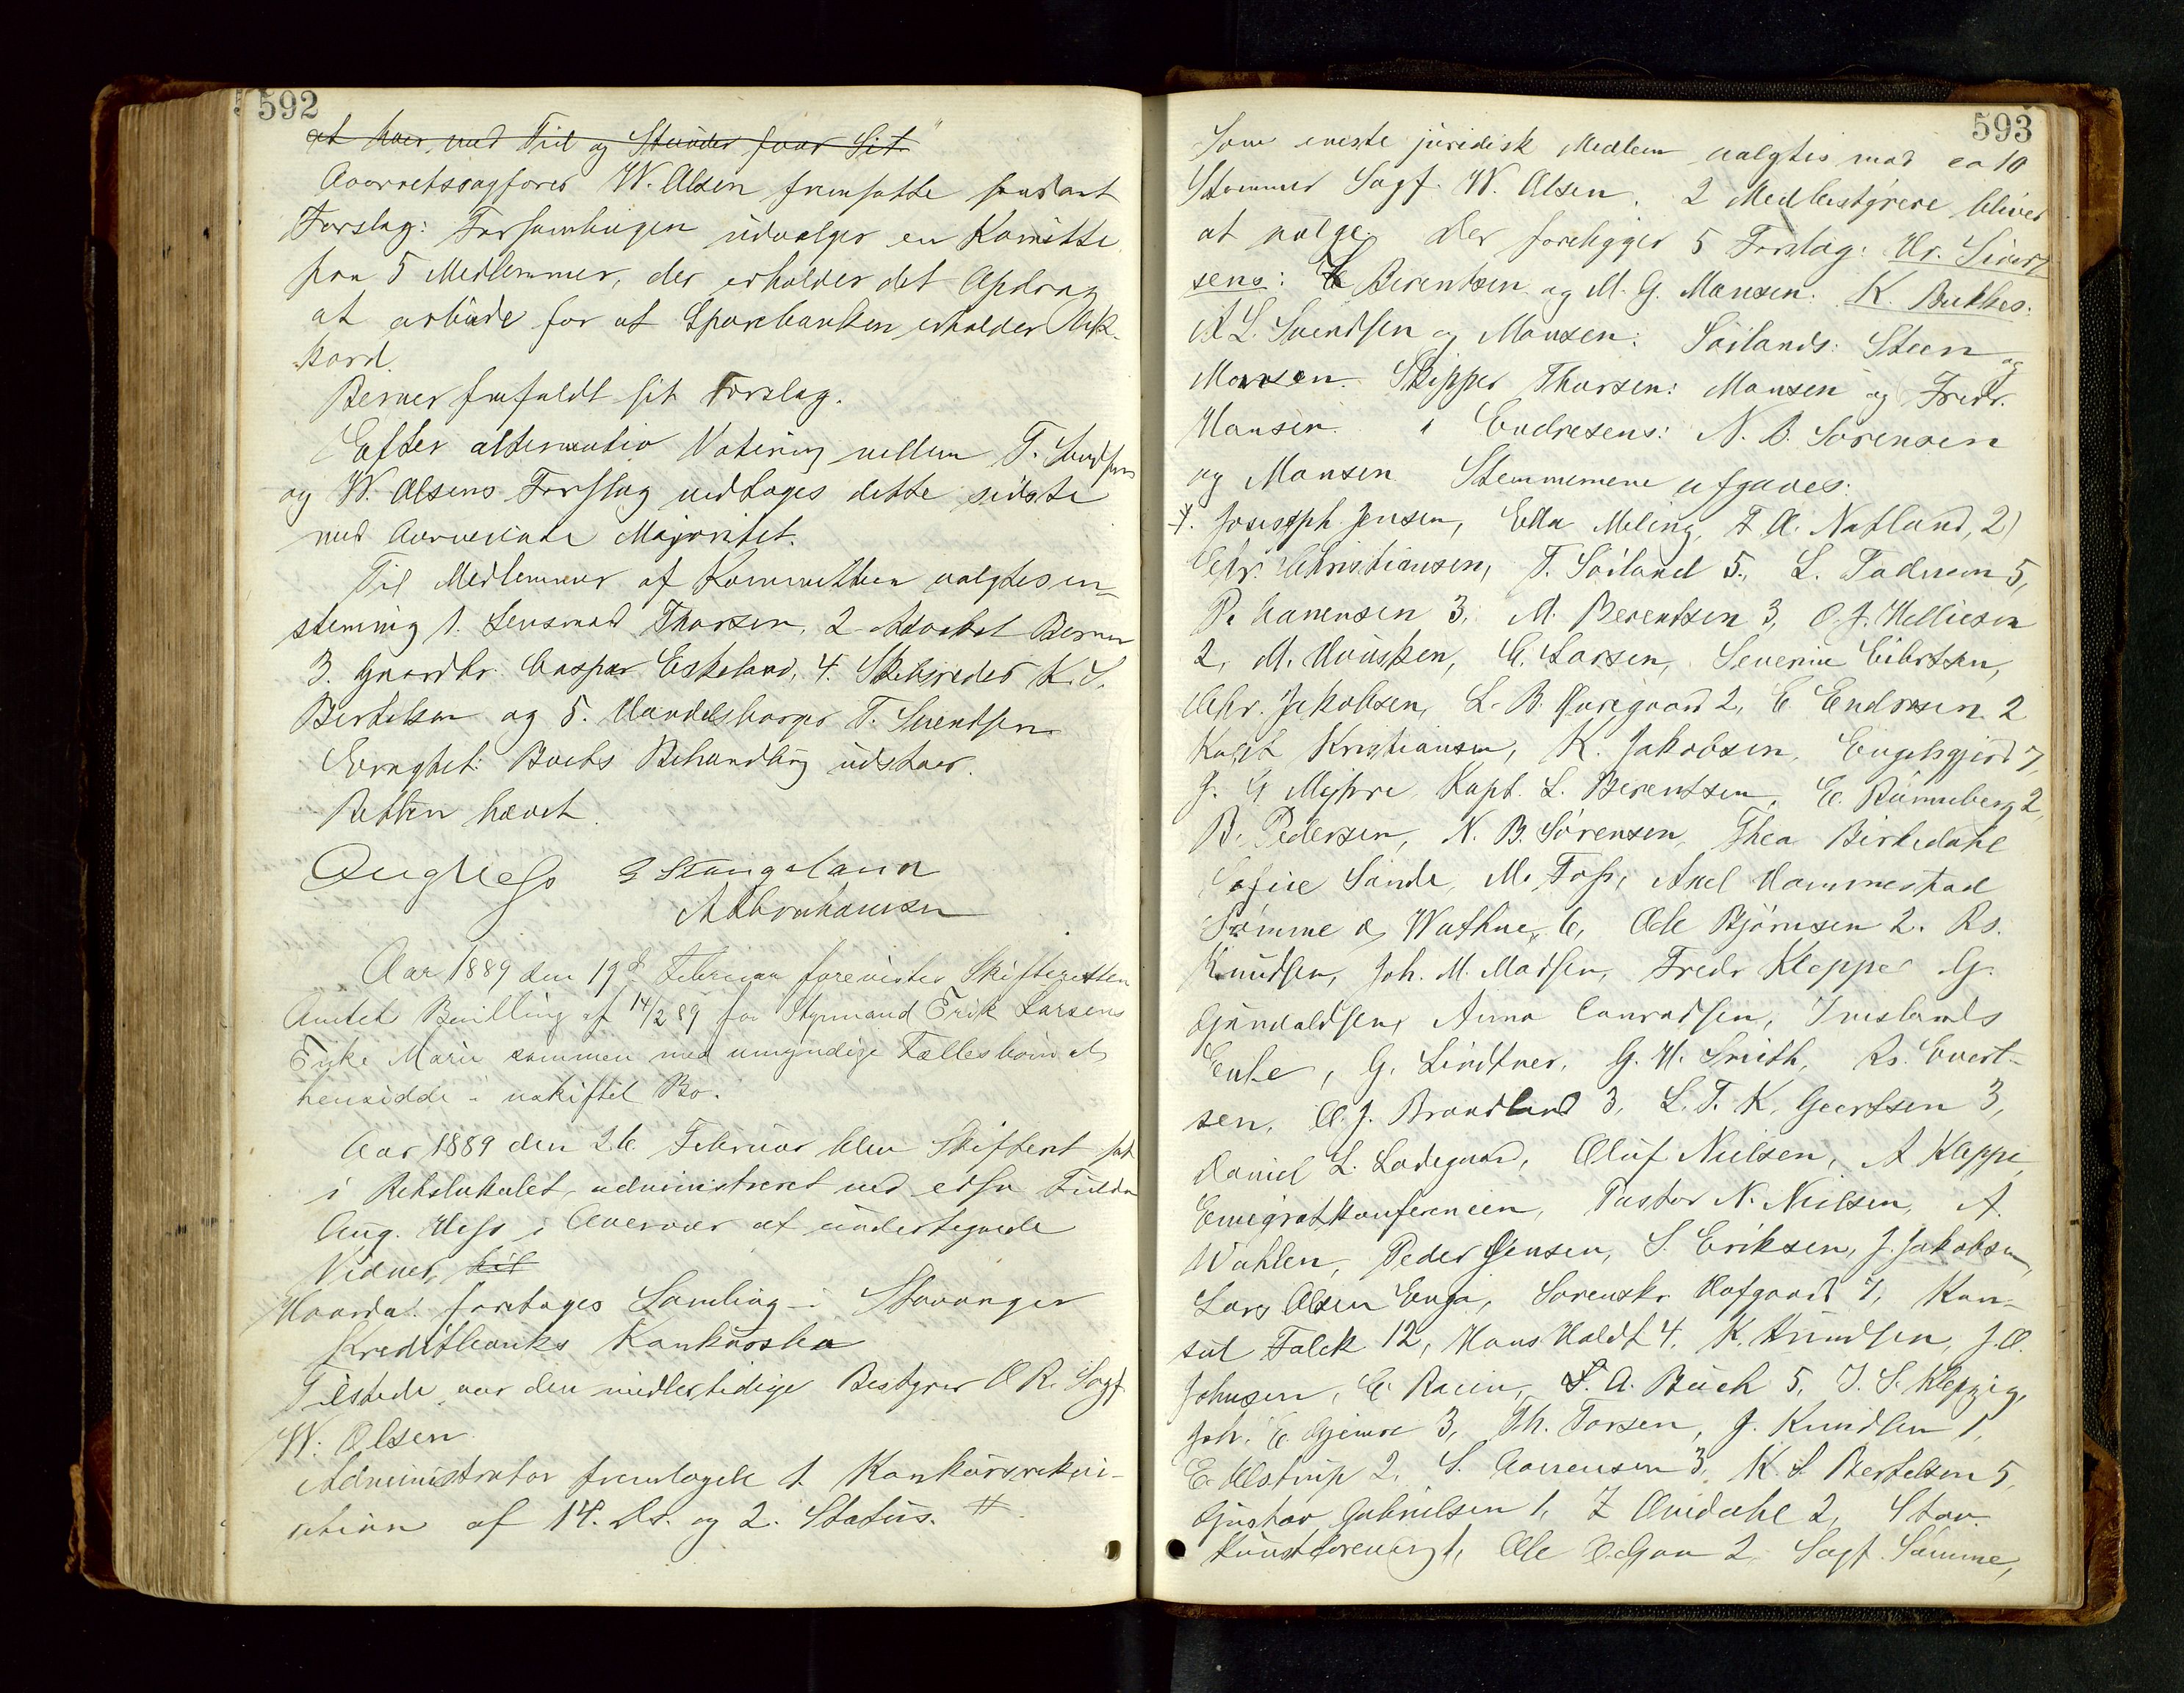 592
at hver ved Tid og Stunder faar Sit"
Overretssagfører W. Olsen fremsatte saadant
Forslag: Forsamlingen udvælger en Komitte
paa 5 Medlemmer, der erholder det Opdrag
at arbeide for at Sparebanken erholder Ak-
kord.
Berner frafaldt sit Forslag.
Efter alternativ Votering mellem T. Svendsens
og W. Olsens Forslag vedtages dette sidste
med overveiende Majoritet.
Til Medlemmer af Kommitteen valgtes en-
stemmig 1. Lensmand Thorsen, 2. Advokat Berner
3. Gaardbr. Caspar Eskeland, 4. Skibsreder K. S.
Bertelsen og 5. Handelsborger T. Svendsen
Boets Behandling udstaar.
Retten hævet.
Aug Hess S Stangeland
A Abrahamsen
Aar 1889 den 19de Februar forevistes Skifteretten
Amtets Bevilling af 14/2 89 for Styrmand Erik Larsens
Enke Marie sammen med umyndige Fællesbørn at
hensidde i uskiftet Bo.
Aar 1889 den 26. Februar blev Skifteret sat
i Retslokalet, administreret ved edsv Fuldm
Aug. Hess i Overvær af undertegnede
Vidner,
Hvorda: foretages Samling i Stavanger
Kreditbanks Konkursbo
Tilstede var den midlertidige Bestyrer O. R. Sagf.
W. Olsen.
Administrator fremlagde 1. Konkursrekvi-
sition af 14. Ds. og 2. Status. #
593
Som eneste juridisk Medlem valgtes mod ca 10
Stemmer Sagf. W. Olsen. 2 Medbestyrere bliver
at vælge. Der foreligger 5 Forslag: Hr. Sivert-
sens: Berentsen og M. G. Monsen. K. Bukkes:
A L. Svendsen og Monsen. Söilands: Steen og
Monsen. Skipper Thorsen: Monsen og Fredr.
Hansen. " Endresens: N. B. Sørensen
og Monsen Stemmerne afgaves:
#. Joseph Jensen, Ella Meling, T. A. Natland, 2)
Chr. Christiansen, T. Söiland 5, L. Tadnem 5,
P. 3, M. Berentsen 3, O. J. Helliesen
2, E. Larsen, Severine Eilertsen,
Chr. Jakobsen, L. B. 2, E Endresen 2
Kapt Kristiansen, K. Jakobsen, Engelsgjerd 7,
J. G Myhre, Kapt. L. Berentsen, E. Rönneberg 2,
B. Pedersen, N. B. Sörensen, Thea Birkedahl
Sofie Sande, M. Foss, Axel Hammestad
Sömme & Wathne 6, Ole Björnsen 2. Rs.
Knudsen, Joh. M. Madsen, Fredr Kleppe G.
Gundaldsen, Anna Conradsen, Imslands
Enke, G. Lindtner, G. H. Smith, Rs. Evert-
sen, O. J. Brandland 3, L. T. K. Geertsen 3,
Daniel L. Ladegaard, Oluf Nielsen, A Kleppe,
Emigratkonferencen, Pastor N. Nielsen, A.
Wahlen, Peder Jensen, S. Eriksen, J. Jakobsen,
Lars Olsen Enga, Sorenskr. Hofgaard 7, Kon-
sul Falck 12, Hans Haldt 4, K. Knudsen, J. O.
Johnsen, E. S. A. Buch 5, J. S. Klepzig,
Joh. E. Gjemre 3, Th. Torsen, J. Knudsen 1,
E. Olstrup 2, S. Aanensen 3, K. S. Bertelsen 5,
Gustav Gabrielsen 1, Z Qvidahl 2, Stav.
Kunstforening 1, Ole 2, Sagf. Sömme,